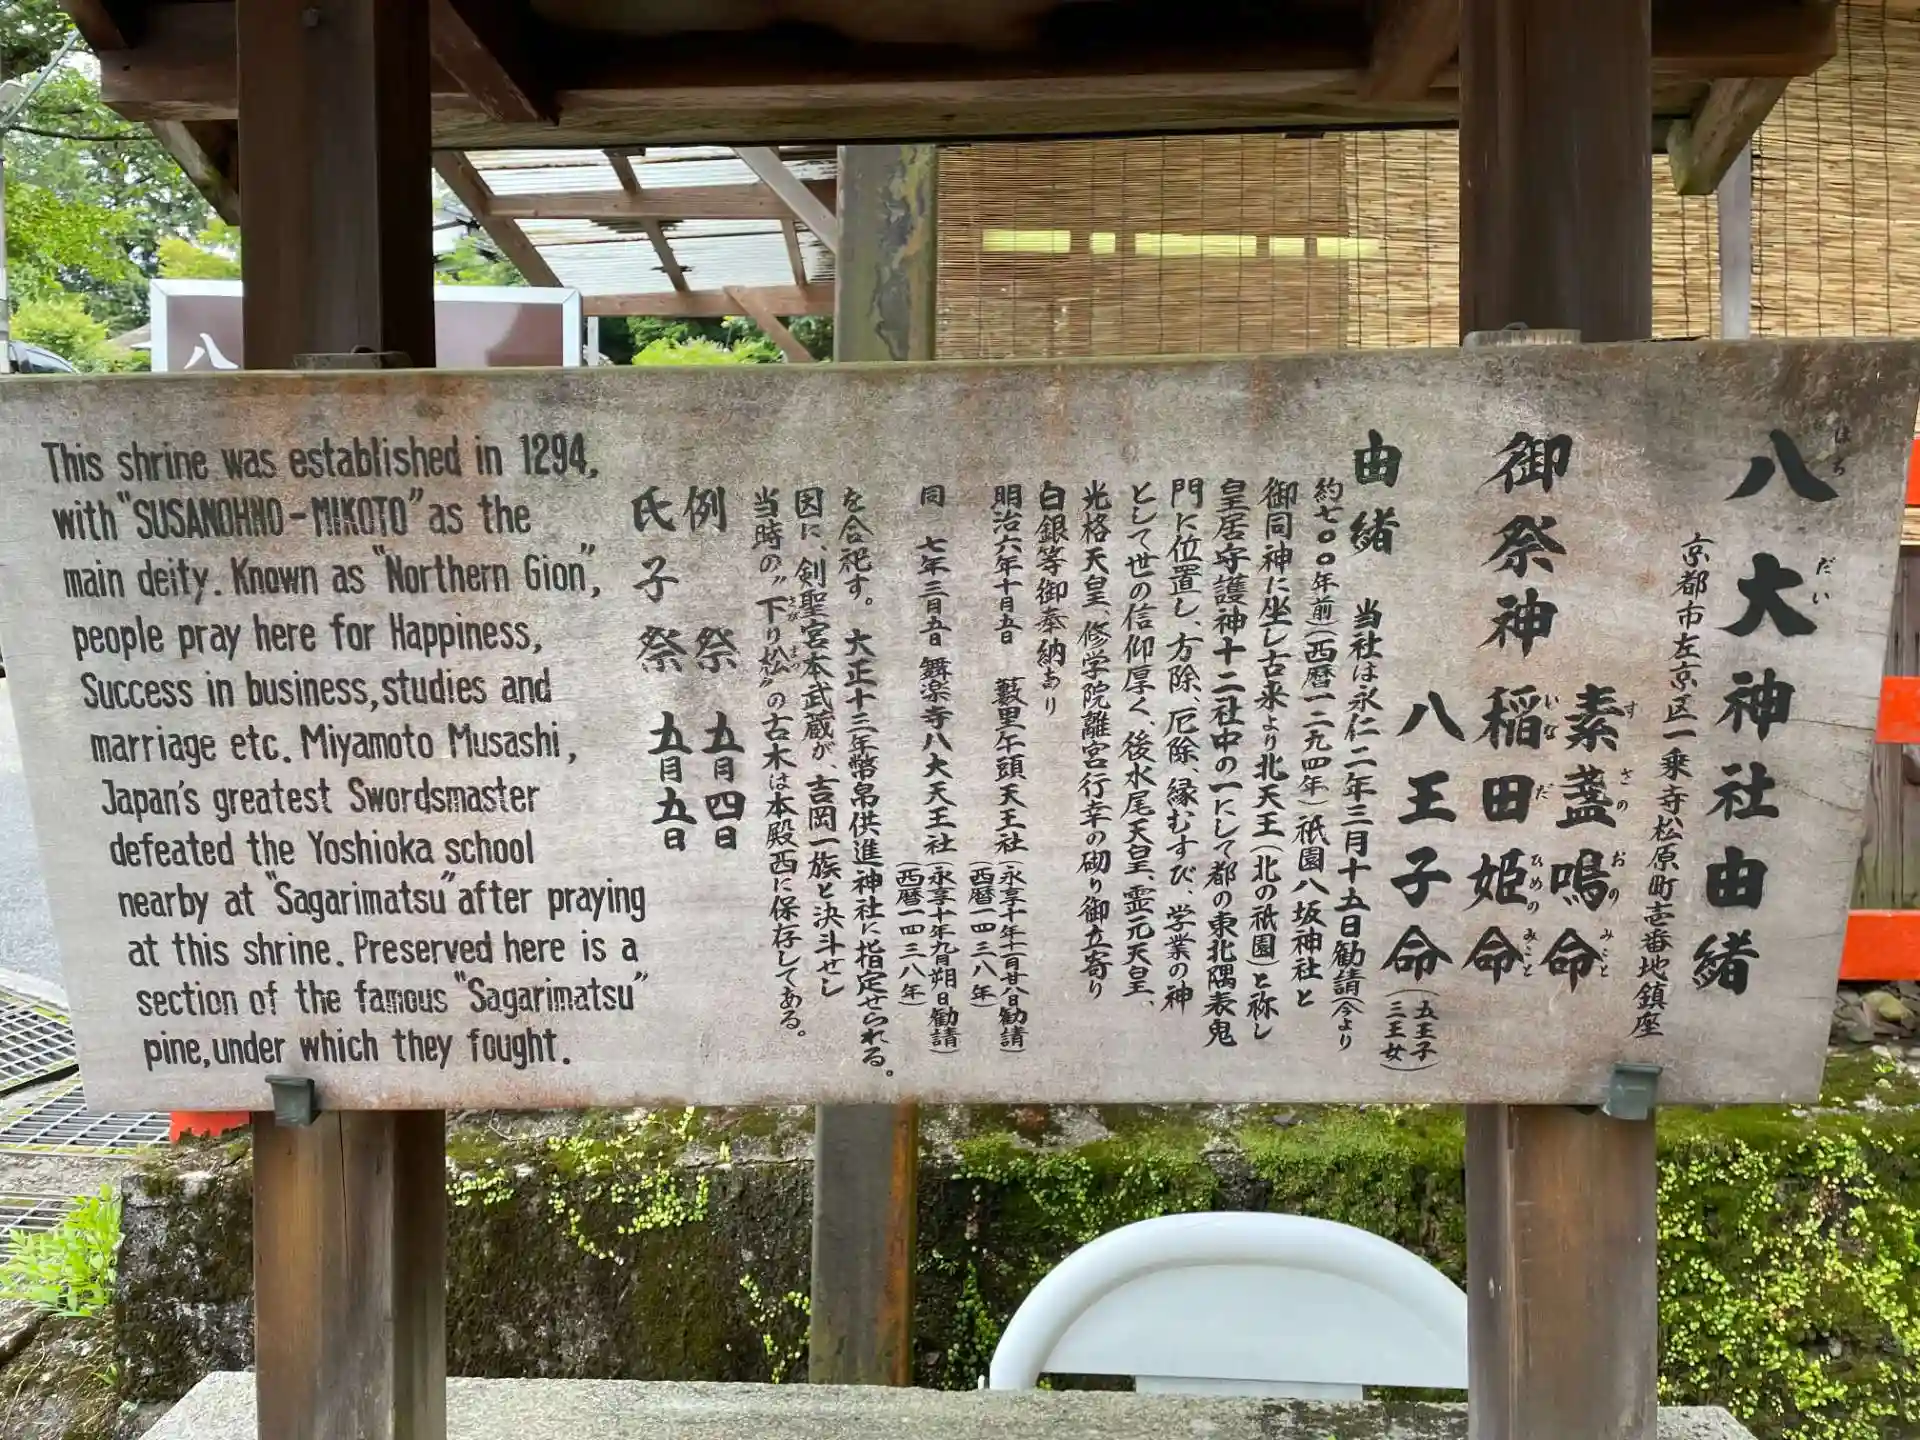 八
八大神社由緒
はち
だい
京都市左京区一乗寺松原町壱番地鎮座
御祭神
素盞嗚命
す さの おの みこと
稲田姫命
いな だ ひめの みこと
八王子命
(五王子
三王女)
由緒
当社は永仁二年三月十五日勧請(今より
約七〇〇年前)(西暦一二九四年)祇園八坂神社と
御同神に坐し古来より北天王(北の祇園)と称し
皇居守護神十二社中の一にして都の東北隅表鬼
門に位置し、方除、厄除、縁むすび、学業の神
として世の信仰厚く、後水尾天皇、霊元天皇、
光格天皇、修学院離宮行幸の砌り御立寄り
白銀等御奉納あり
明治六年十月五日 藪里牛頭天王社(永享十年十一月廿八日勧請)
(西暦一四三八年)
同 七年三月五日 舞楽寺八大天王社(永享十年九月朔日勧請)
(西暦一四三八年)
を合祀す。大正十三年幣帛供進神社に指定せられる。
因に、剣聖宮本武蔵が、吉岡一族と決斗せし
当時の〝下り松〟の古木は本殿西に保存してある。
さが まつ
例祭 五月四日
氏子祭 五月五日
This shrine was established in 1294,
with "SUSANOHNO-MIKOTO" as the
main deity. Known as "Northern Gion",
people pray here for Happiness,
Success in business, studies and
marriage etc. Miyamoto Musashi,
Japan's greatest Swordsmaster
defeated the Yoshioka school
nearby at "Sagarimatsu" after praying
at this shrine. Preserved here is a
section of the famous "Sagarimatsu"
pine, under which they fought.